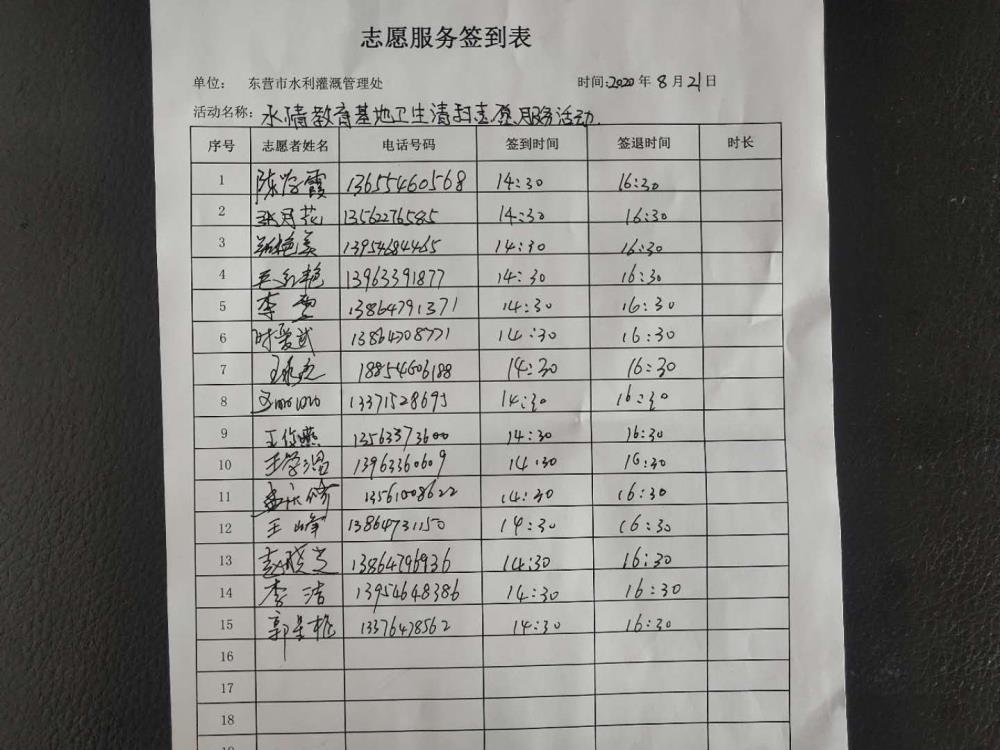 志愿服务签到表
单位： 东营市水利灌溉管理处 时间:2020 年 8 月 21 日
活动名称: 水情教育基地卫生清扫志愿服务活动.
序号 志愿者姓名 电话号码 签到时间 签退时间 时长
1 陈学霞 13655460568 14:30 16:30
2 张月花 13562276585 14:30 16:30
3 13954684465 14:30 16:30
4 毛红艳 13963391877 14:30 16:30
5 李 13864791371 14:30 16:30
6 时爱武 13864708771 14:30 16:30
7 18854606188 14:30 16:30
8 13371528695 14:30 16:30
9 王俊燕 13563373600 14:30 16:30
10 王学温 13963360609 14:30 16:30
11 13561008622 14:30 16:30
12 王峰 13864731150 14:30 16:30
13 赵晓兰 13864796936 14:30 16:30
14 李洁 13954648386 14:30 16:30
15 郭 13376478562 14:30 16:30
16
17
18